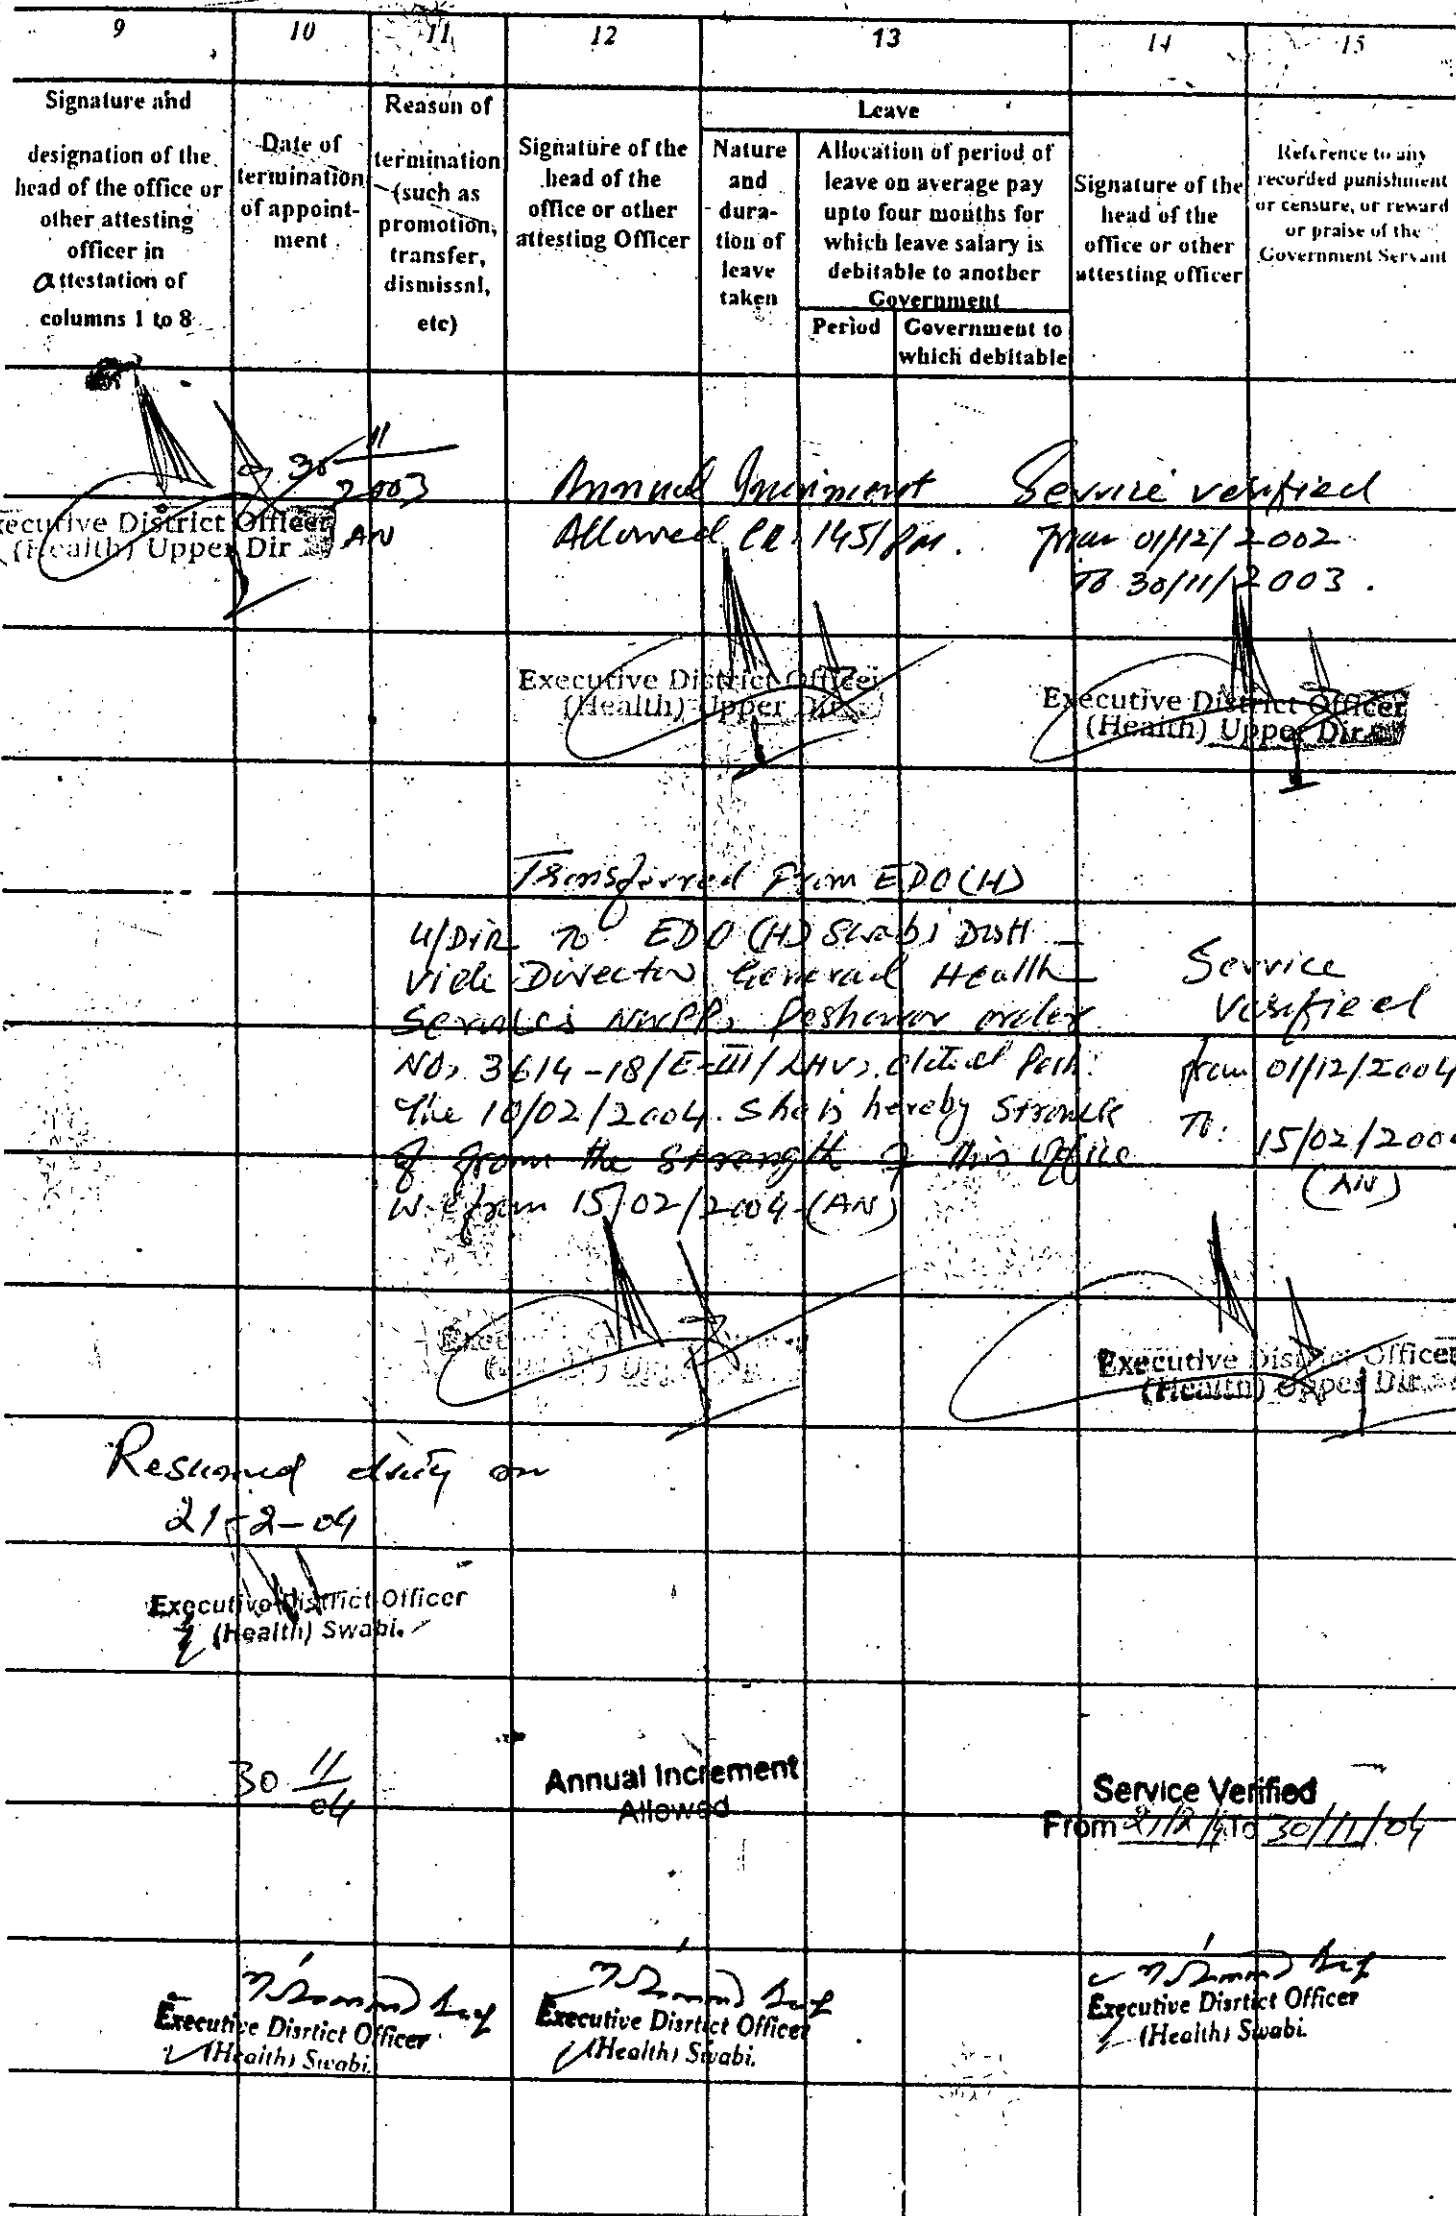 9 10 11 12 13 14 15
Signature and
designation of the
head of the office or
other attesting
officer in
attestation of
columns 1 to 8
Date of
termination
of appoint-
ment
Reason of
termination
(such as
promotion,
transfer,
dismissal,
etc)
Signature of the
head of the
office or other
attesting Officer
Leave
Nature
and
dura-
tion of
leave
taken
Allocation of period of
leave on average pay
upto four months for
which leave salary is
debitable to another
Government
Period
Government to
which debitable
Signature of the
head of the
office or other
attesting officer
Reference to any
recorded punishment
or censure, or reward
or praise of the
Government Servant
30 11
2003
AN
Executive District Officer
(Health) Upper Dir
Annual Increment
Allowed 145/Pm.
Executive District Officer
(Health) Upper Dir
Service verified
From 01/12/2002
To 30/11/2003.
Executive District Officer
(Health) Upper Dir
Transferred From EDO(H)
U/DIR To EDO (H) Swabi Distt
Vide Director General Health
Services NWFP, Peshawar order
NO, 3614-18/E-III/LHV, dated Pesh:
the 10/02/2004. She is hereby Struck
of from the strength of this office
w.e from 15/02/2004 (AN)
Service
Verified
from 01/12/2004
To: 15/02/2004
(AN)
Executive District Officer
(Health) Upper Dir
Resumed duty on
21-2-04
Executive District Officer
(Health) Swabi.
30 11
04
Annual Increment
Allowed
Service Verified
From 21/2/4 To 30/11/04
Executive Disrtict Officer
(Health) Swabi.
Executive Disrtict Officer
(Health) Swabi.
Executive Disrtict Officer
(Health) Swabi.